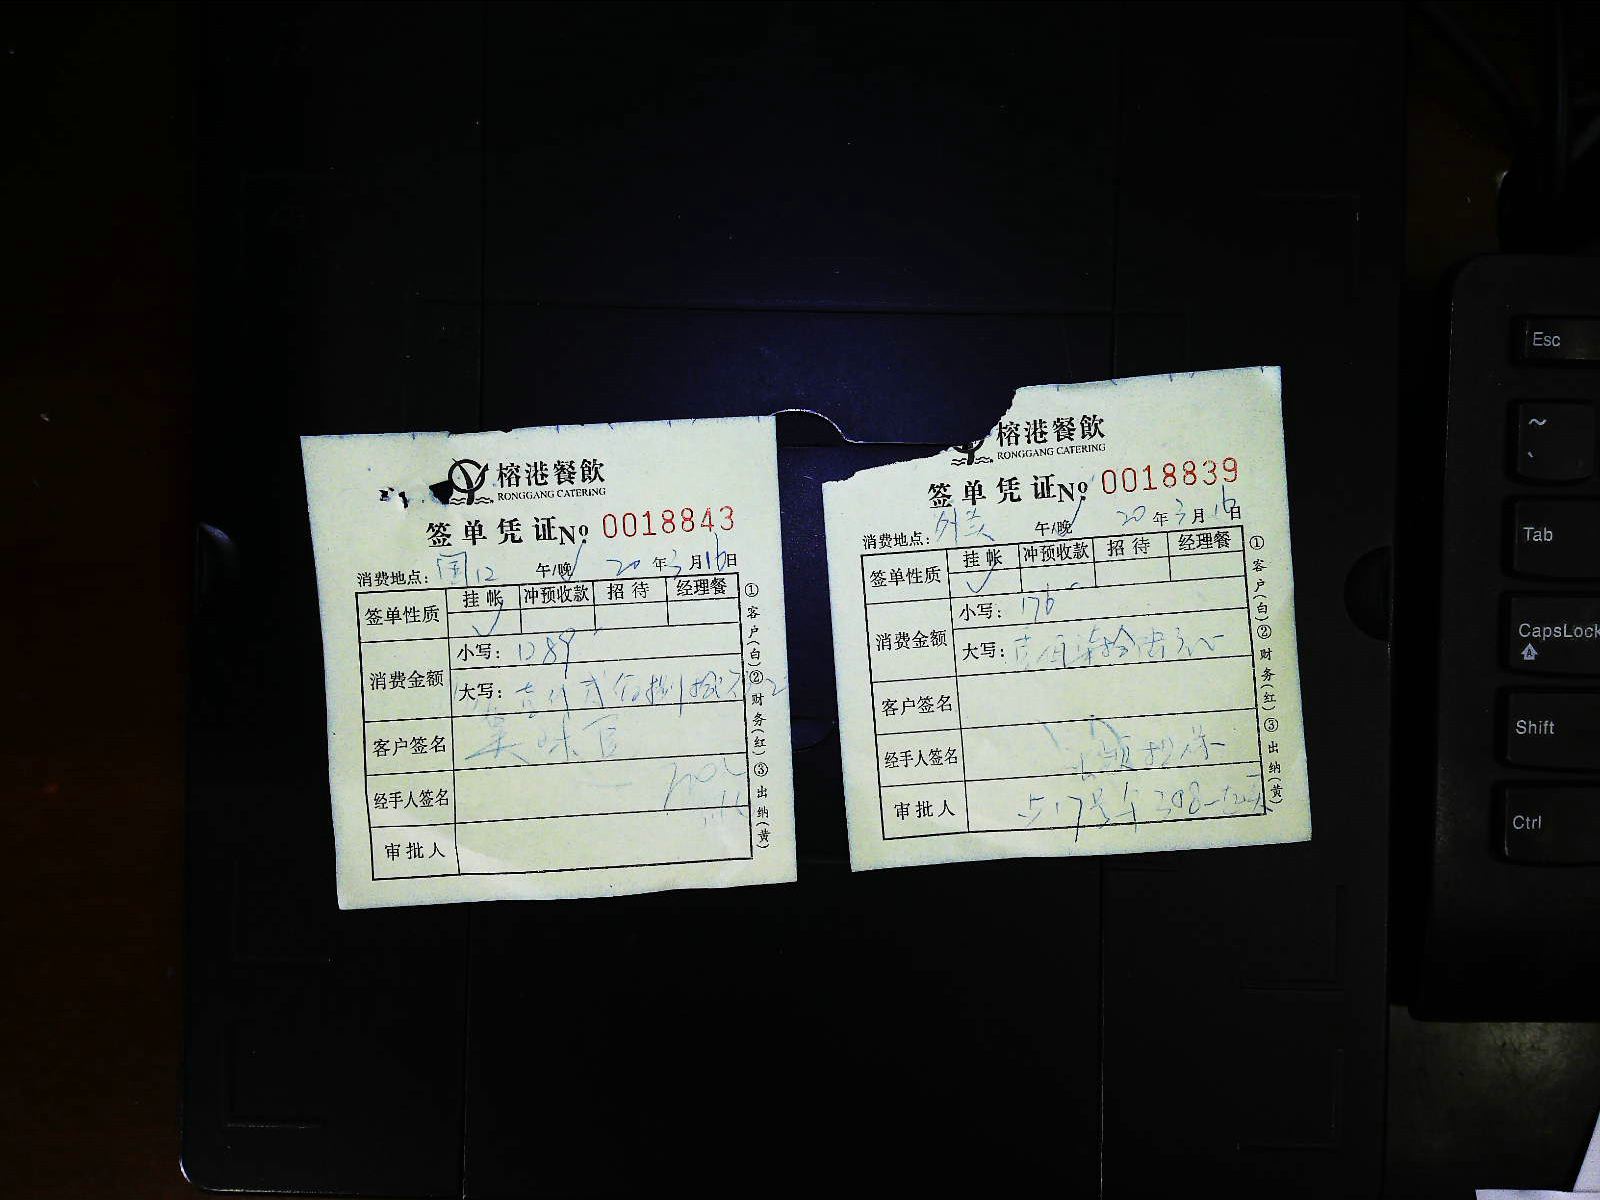 榕港餐飲
RONGGANG CATERING
签单凭证№ 0018843
消费地点: 12 午/晚 20年3月16日
签单性质 挂帐 冲预收款 招待 经理餐
消费金额 小写: 1289
大写:
客户签名
经手人签名
审批人
①客户(白)②财务(红)③出纳(黄)
榕港餐飲
RONGGANG CATERING
签单凭证№ 0018839
消费地点: 外卖 午/晚 20年3月16日
签单性质 挂帐 冲预收款 招待 经理餐
消费金额 小写: 176
大写: 壹佰柒拾陆元
客户签名
经手人签名
审批人
①客户(白)②财务(红)③出纳(黄)
Esc
~
Tab
CapsLock
Shift
Ctrl